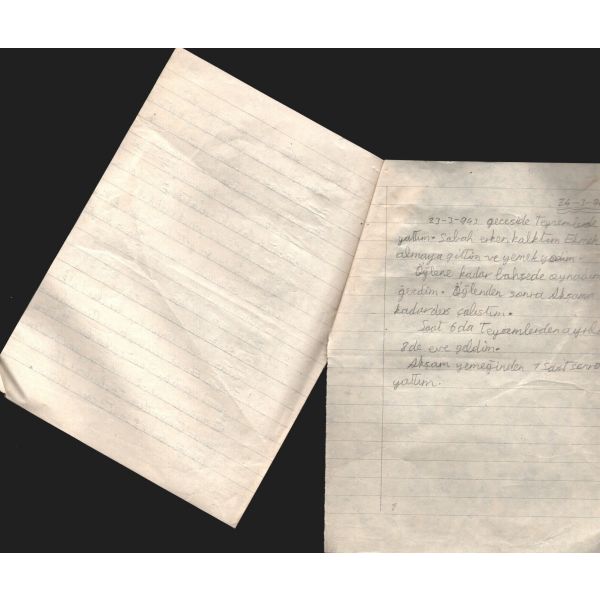 24-3-94
23-3-941 geceside Teyzemlerde
yattım. Sabah erken kalktım Ekmek
almaya gittim ve yemek yedim.
Öğlene kadar bahsede oynadım
gezdim. Öğlenden sonra Akşama
kadar ders çalıştım.
Saat 6 da Teyzemlerden ayrıl
8 de eve geldim.
Akşam yemeğinden 1 saat sonra
yattım.